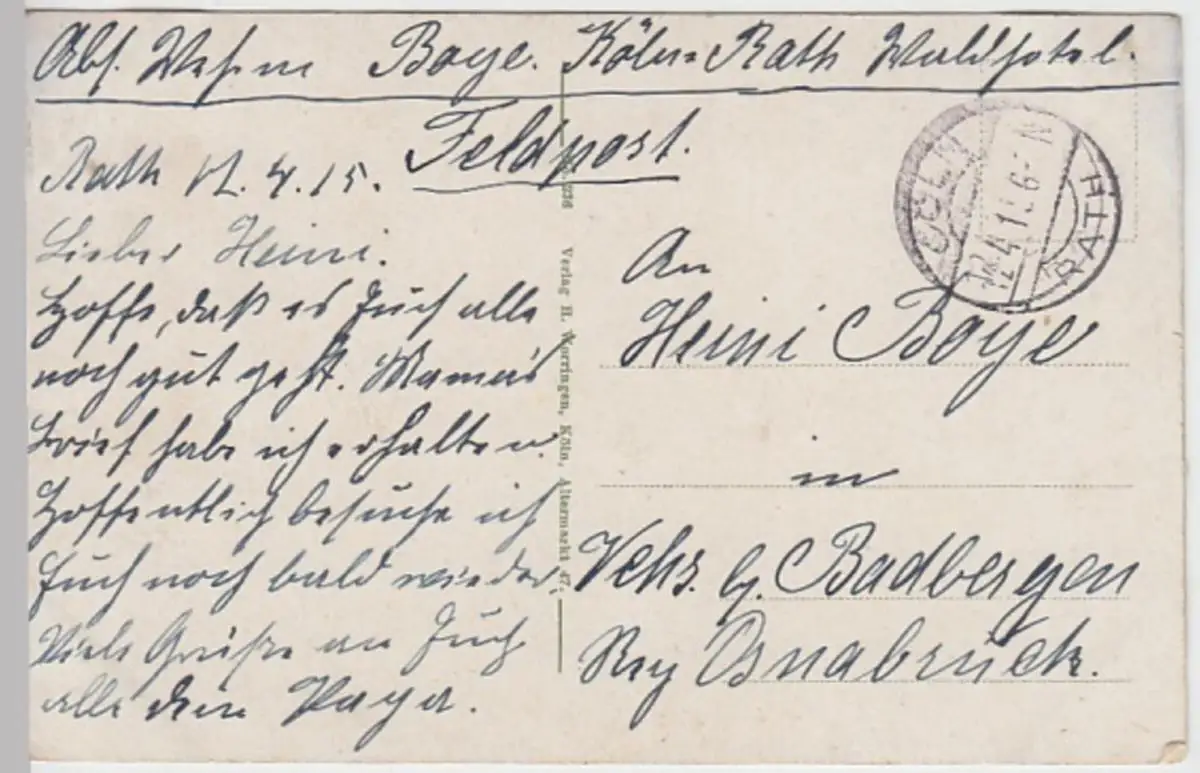 Abs. Wehrm Boye. Köln-Rath Waldhotel.
Feldpost.
Rath 12.4.15.
Lieber Heini.
Hoffe, daß es Euch alle
noch gut geht. Mama's
Brief habe ich erhalten u.
Hoffentlich besuche ich
Euch noch bald wieder
Viele Grüße an Euch
alle dein Papa.
CÖLN
12.4.15 6-7 N
RATH
An
Heini Boye
in
Vehs. b. Badbergen
Reg Osnabrück.
Verlag H. Worringen, Köln, Altermarkt 47.